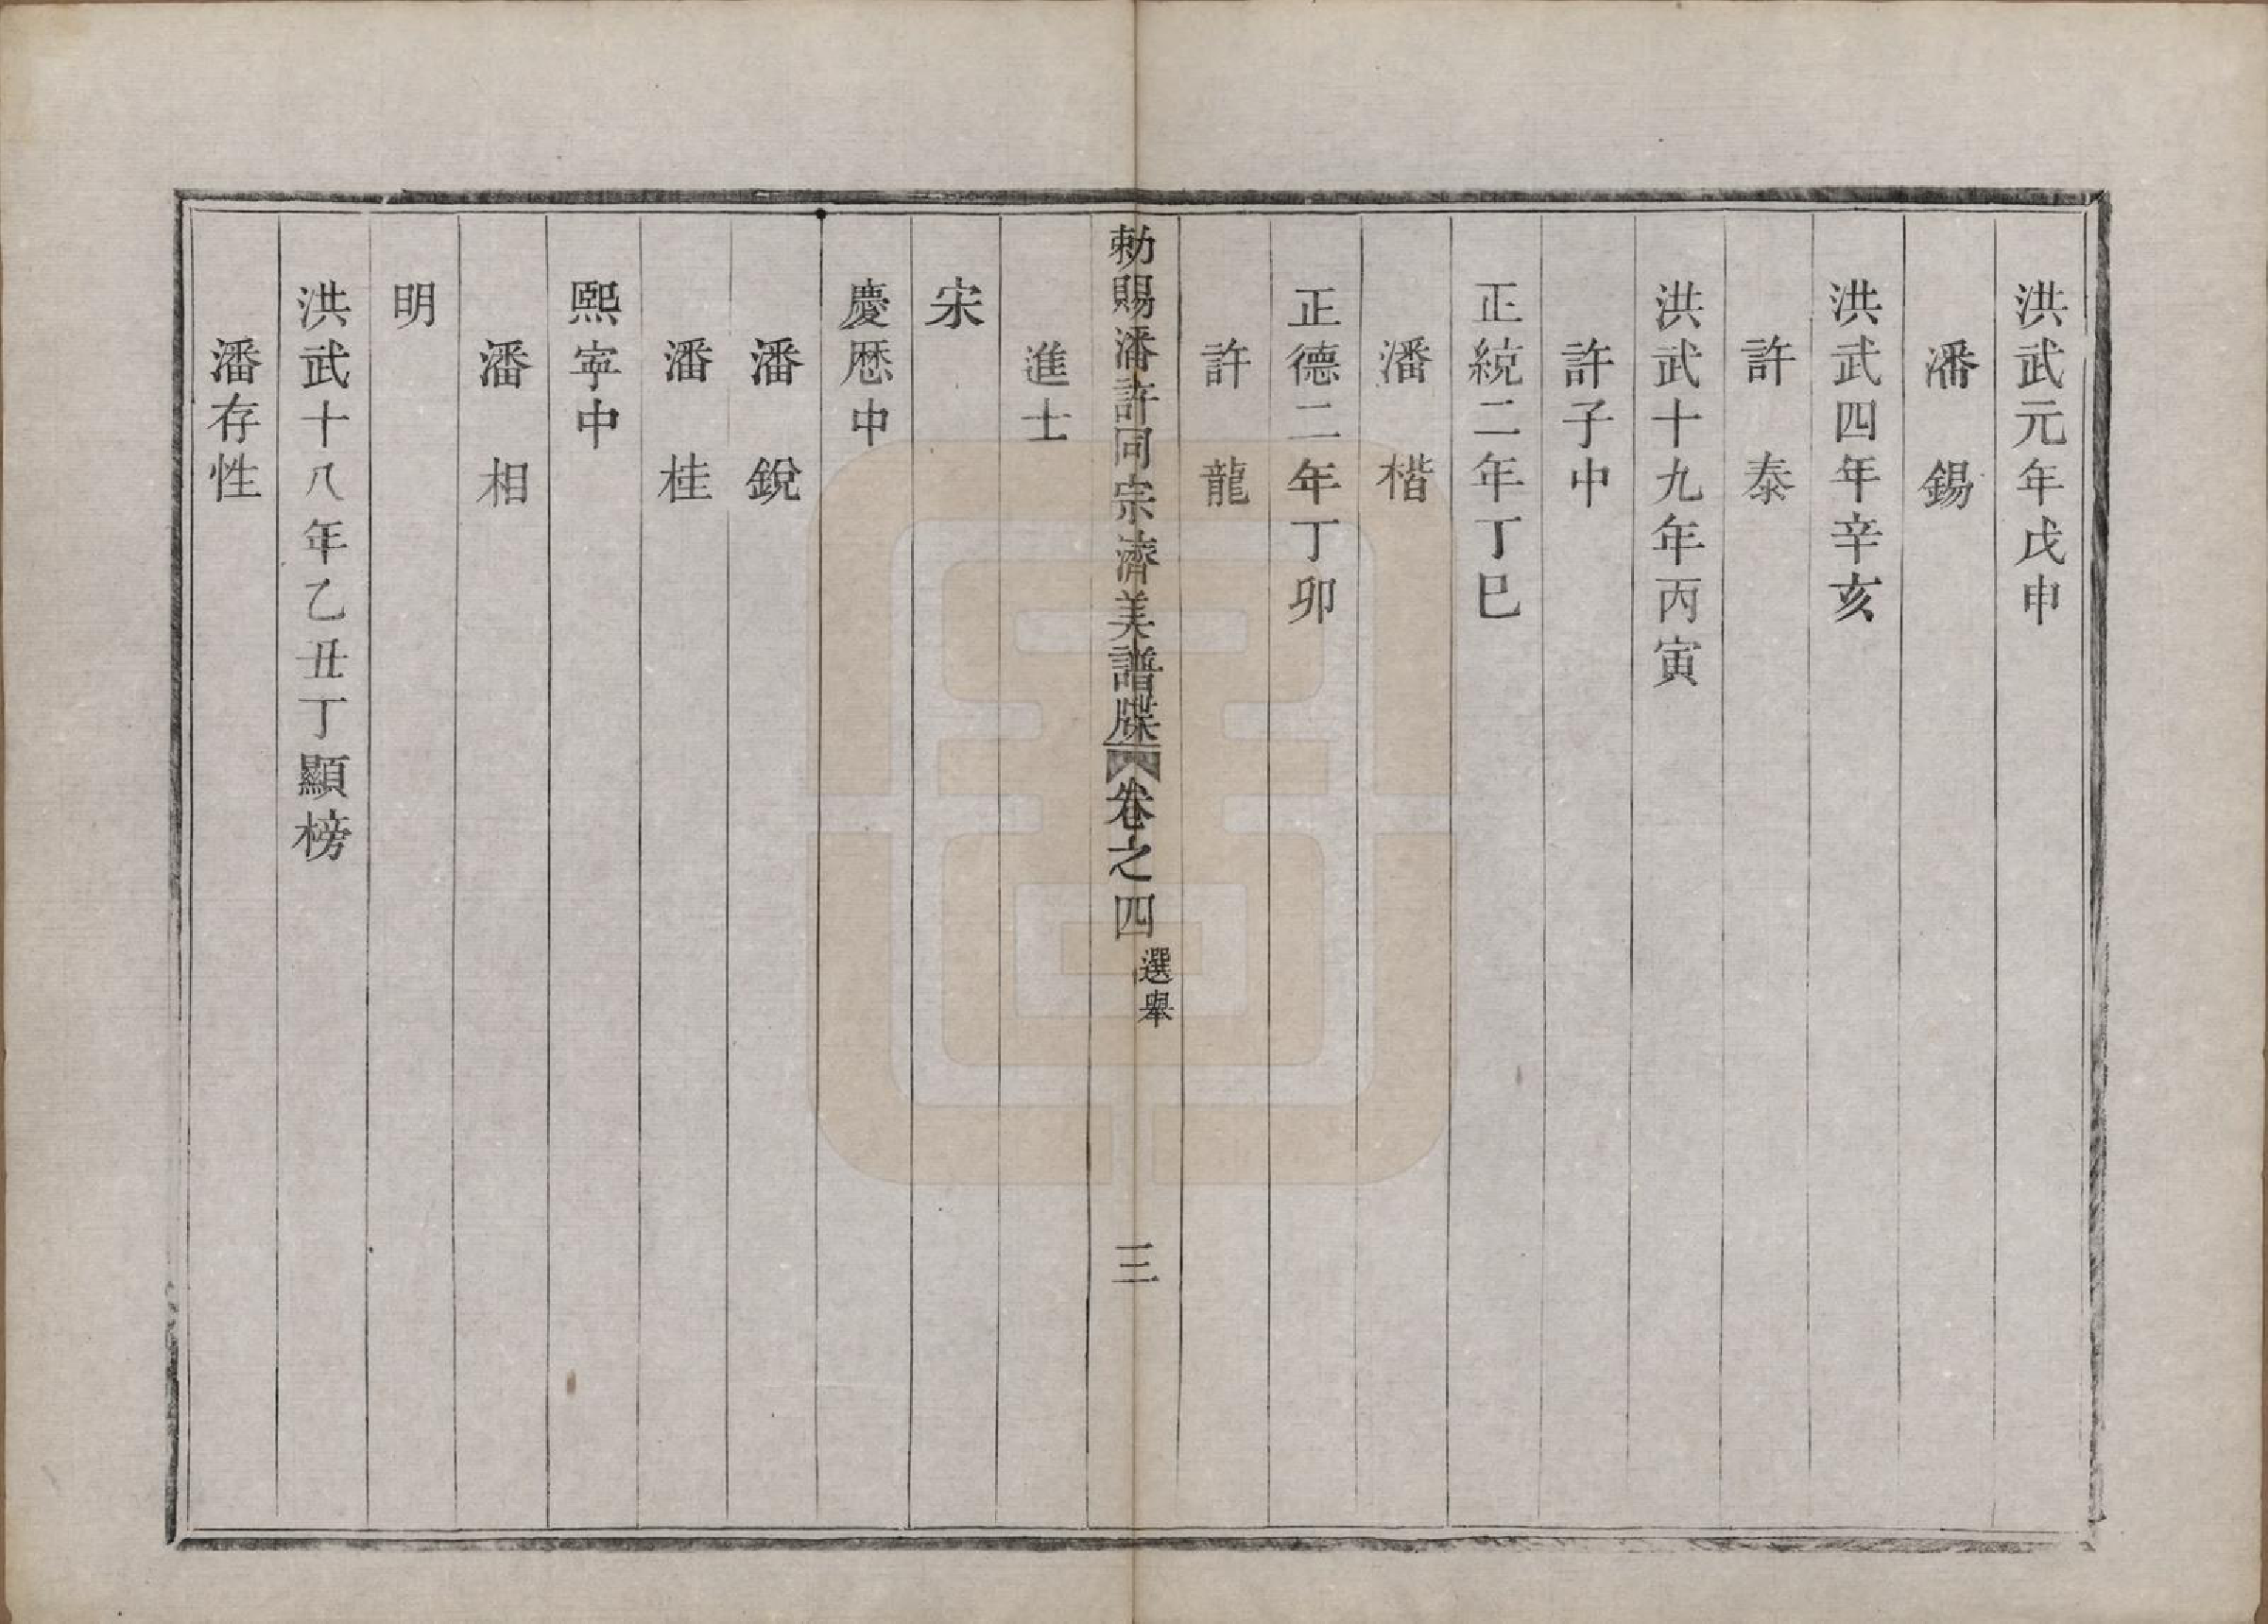 洪武元年戊申
潘錫
洪武四年辛亥
許泰
洪武十九年丙寅
許子中
正統二年丁巳
潘楷
正德二年丁卯
許龍
勅賜潘許同宗濟美譜牒
卷之四
選舉
三
進士
宋
慶厯中
潘銳
潘桂
熙寕中
潘相
明
洪武十八年乙丑丁顯榜
潘存性